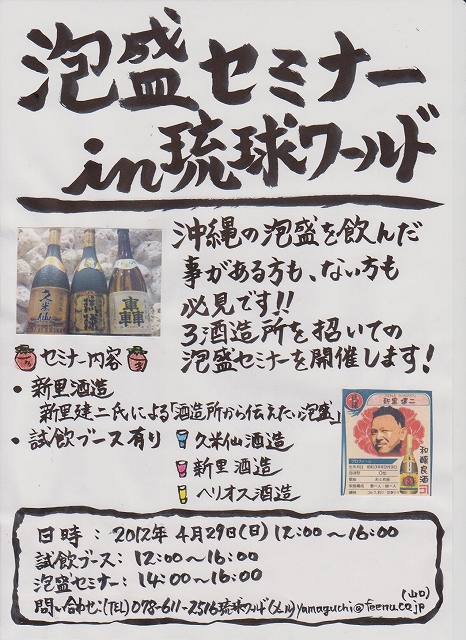 泡盛セミナー
in琉球ワールド
沖縄の泡盛を飲んだ
事がある方も、ない方も
必見です!!
3酒造所を招いての
泡盛セミナーを開催します!
久米仙
琉球
轟
セミナー内容
・新里酒造
新里建二氏による「酒造所から伝えたい泡盛」
・試飲ブース有り
久米仙酒造
新里酒造
ヘリオス酒造
新里建二
プロフィール
和醸良酒
日時：2012年4月29日(日)12:00～16:00
試飲ブース：12:00～16:00
泡盛セミナー：14:00～16:00
(山口)
問い合わせ：(TEL)078-611-2516琉球ワールド(メール)yamaguchi@feenu.co.jp